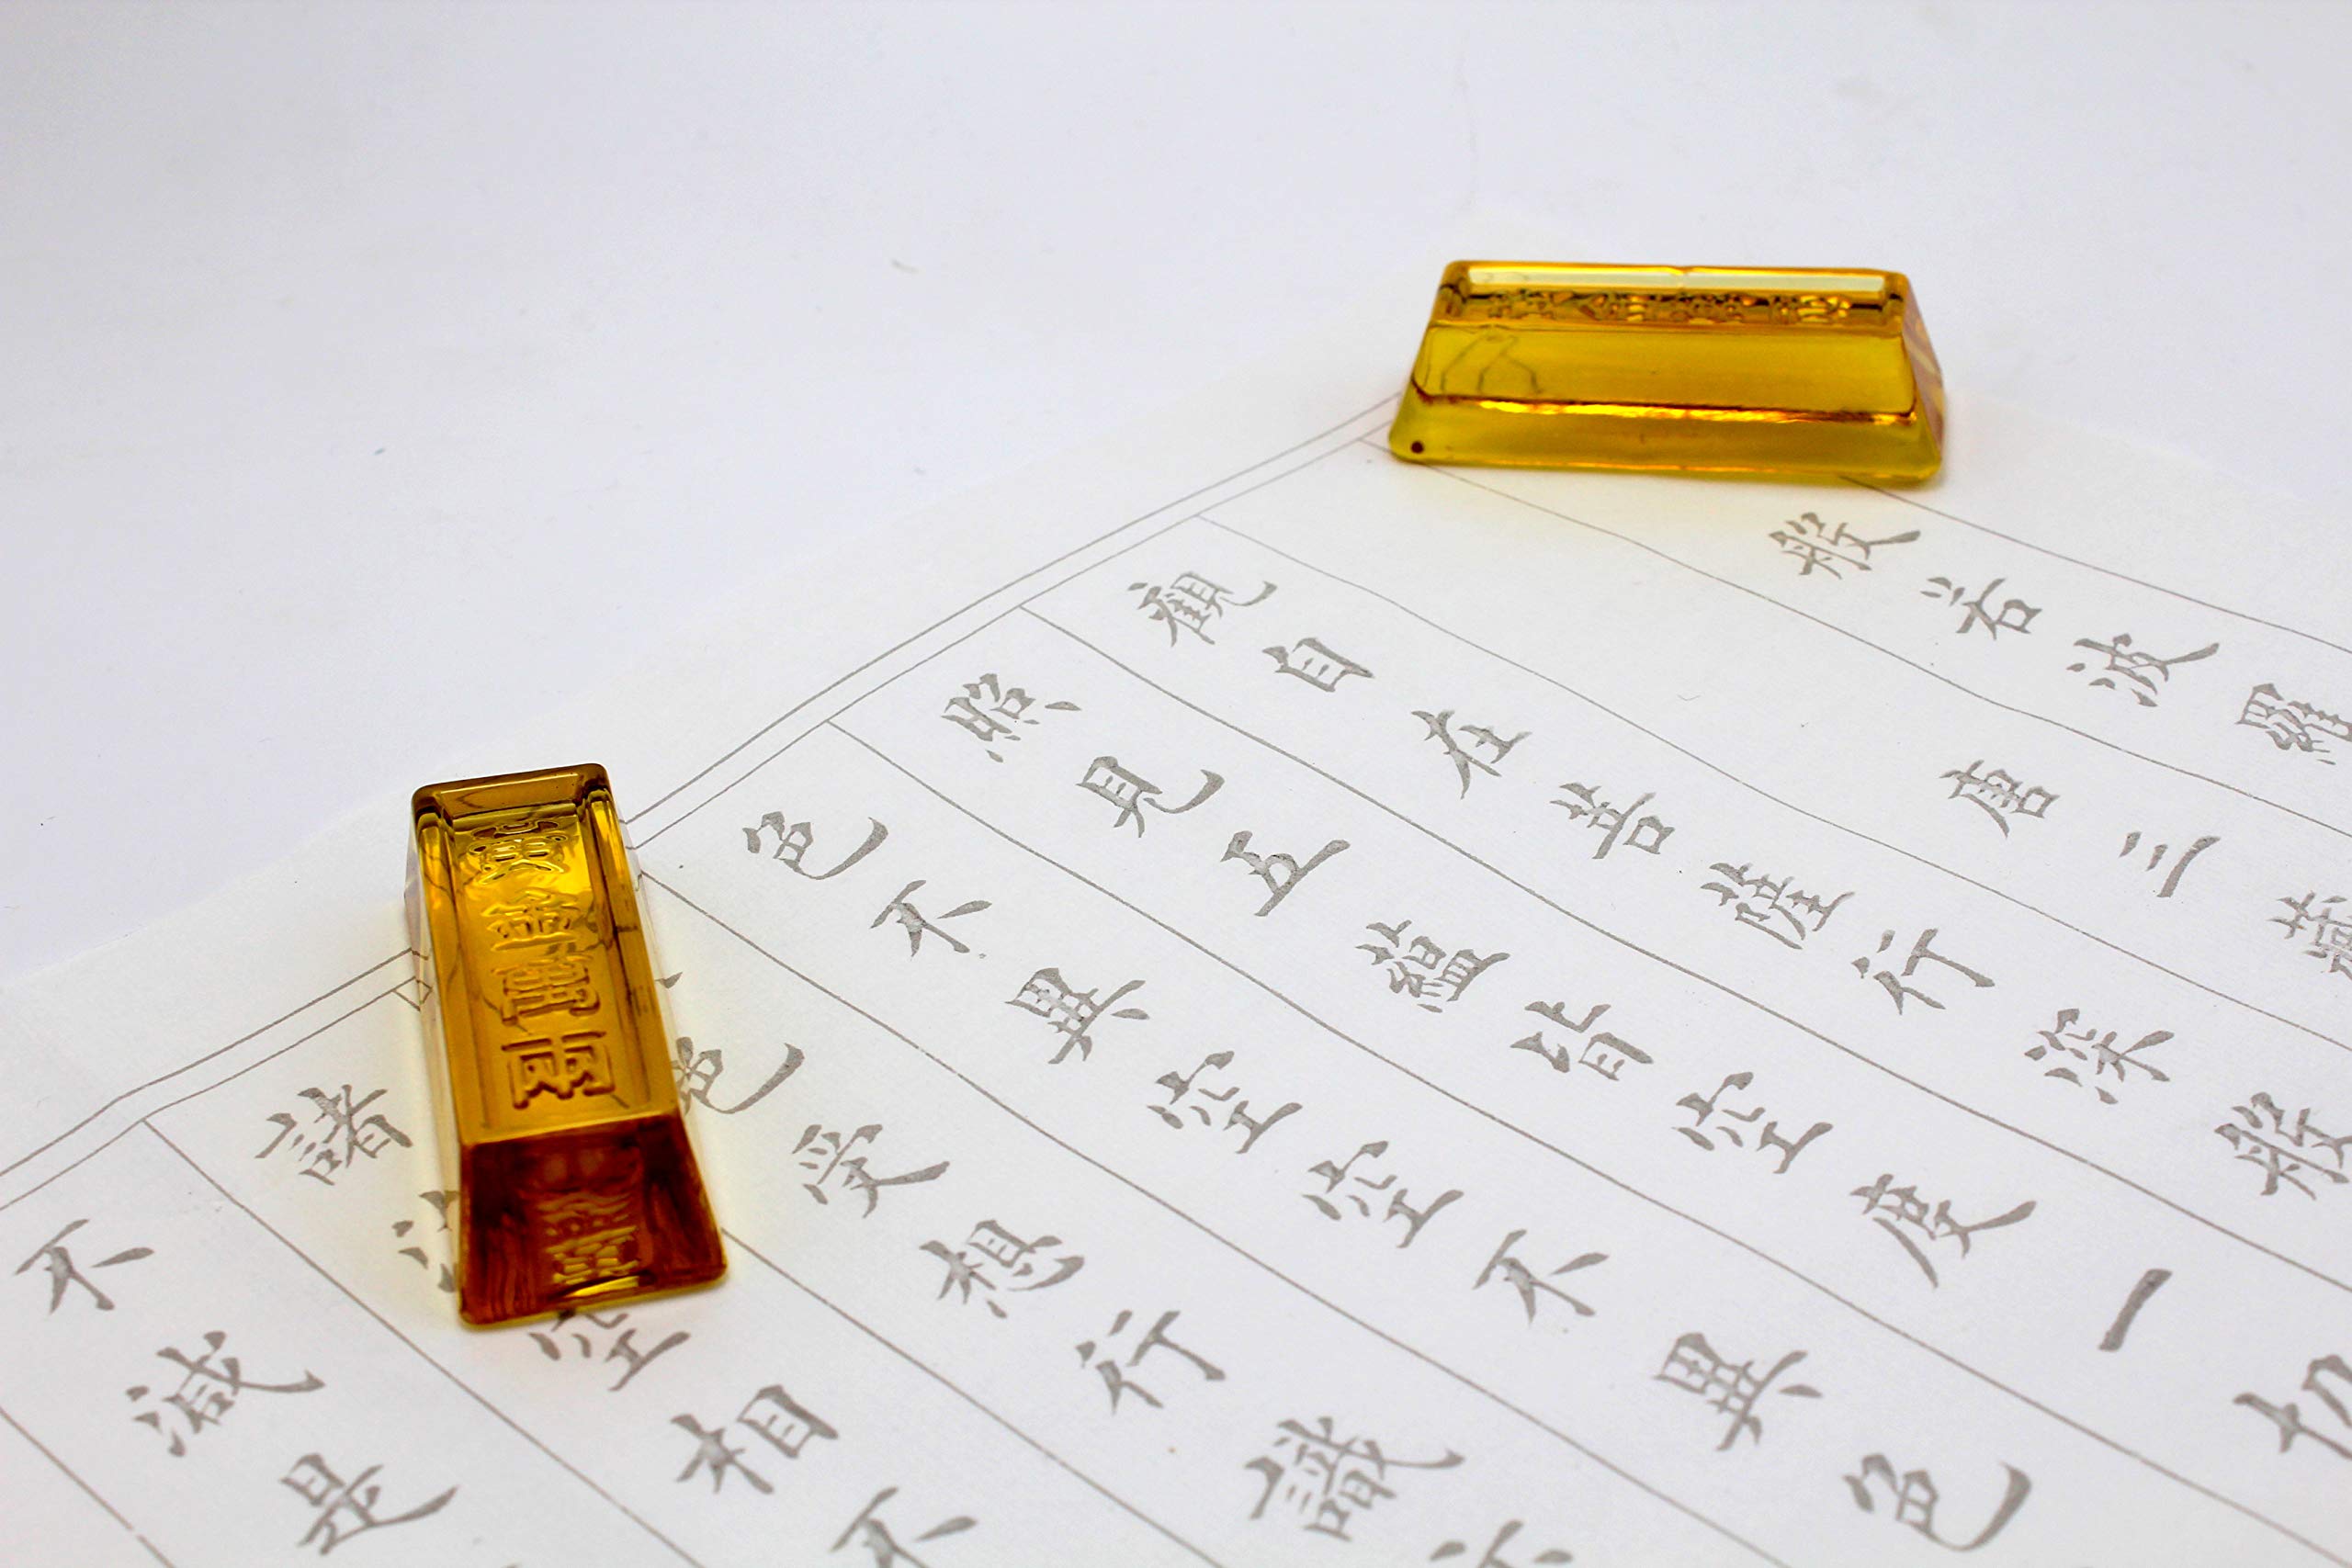 般若波羅
唐三藏
觀自在菩薩行深般
照見五蘊皆空度一切
色不異空空不異色
色受想行識亦
諸法空相不
不減是
黃金萬兩